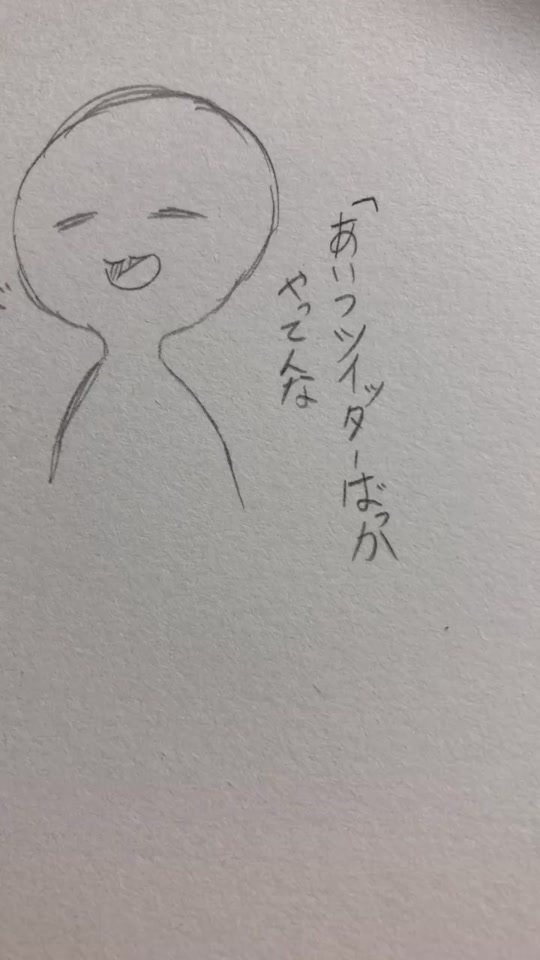 「あいつツイッターばっか
やってんな